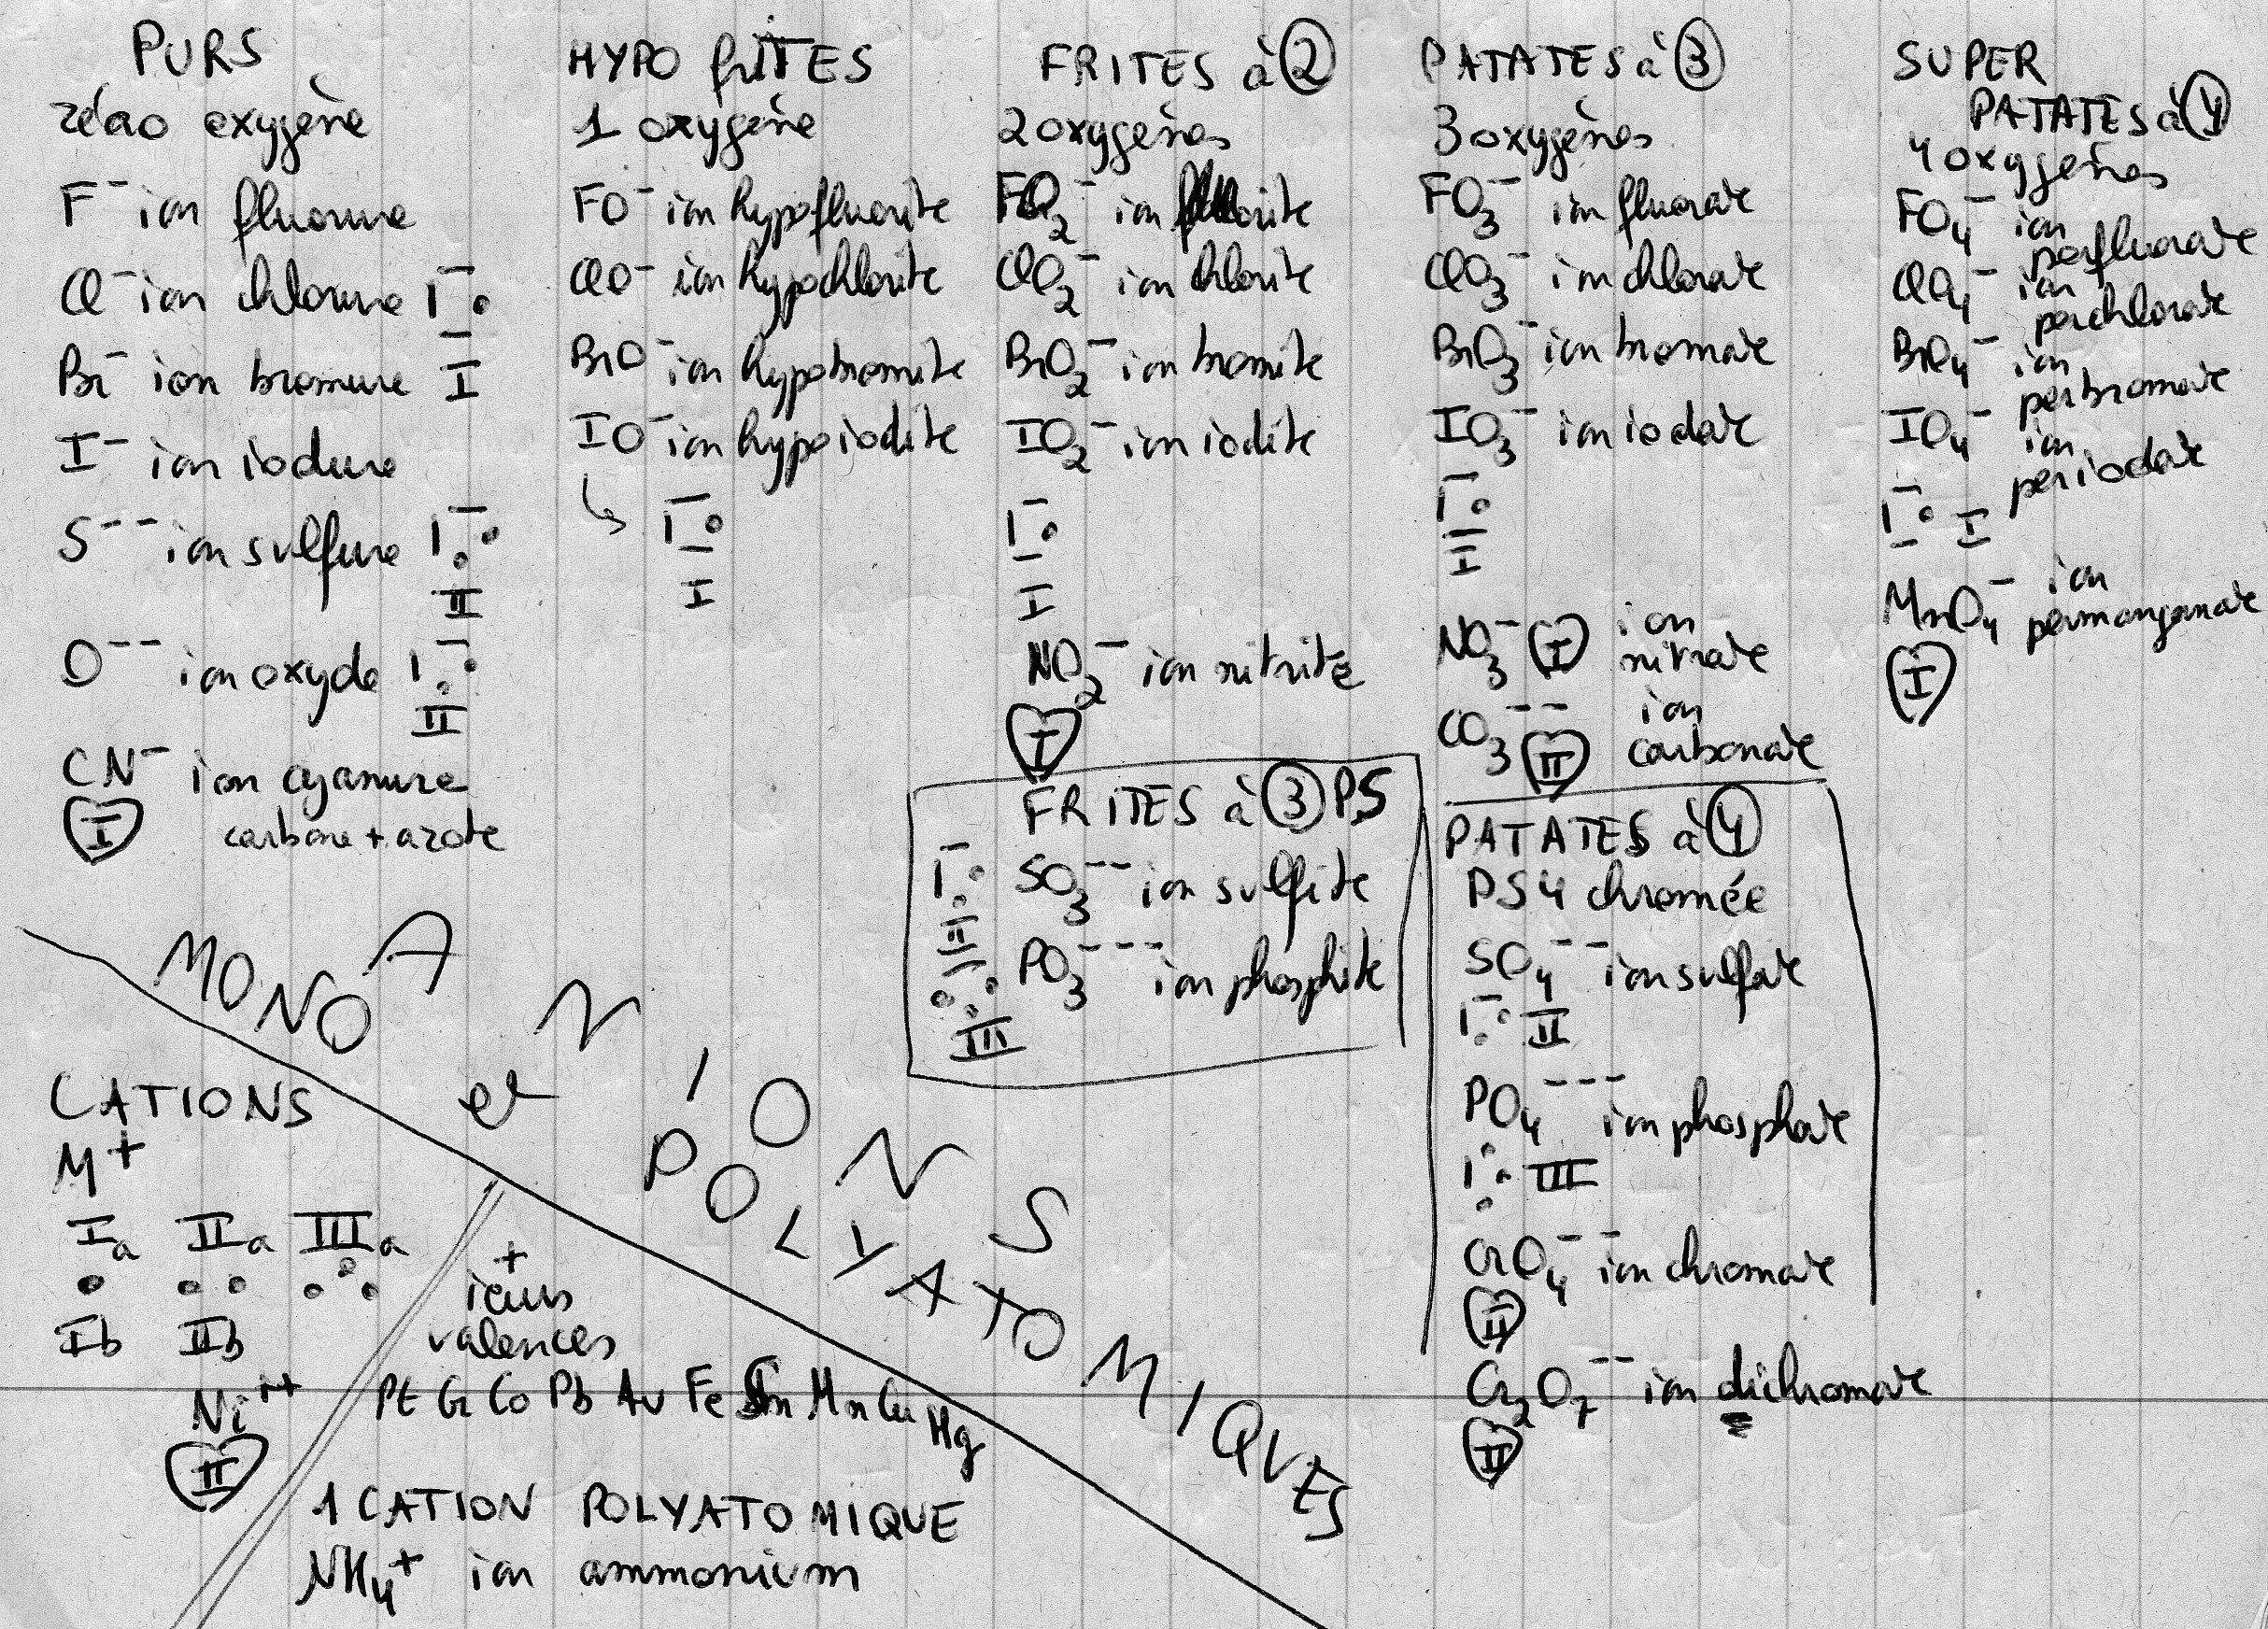 PURS
zéro oxygène
F⁻ ion fluorure
Cl⁻ ion chlorure
I
Br⁻ ion bromure
I⁻ ion iodure
S⁻⁻ ion sulfure
II
O⁻⁻ ion oxyde
II
CN⁻ ion cyanure
I
carbone + azote
HYPO frITES
1 oxygène
FO⁻ ion hypofluorite
ClO⁻ ion hypochlorite
BrO⁻ ion hypobromite
IO⁻ ion hypoiodite
I
FRITES à 2
2 oxygènes
FO₂⁻ ion fluorite
ClO₂⁻ ion chlorite
BrO₂⁻ ion bromite
IO₂⁻ ion iodite
I
NO₂⁻ ion nitrite
I
FRITES à 3 PS
SO₃⁻⁻ ion sulfite
II
PO₃⁻⁻⁻ ion phosphite
III
PATATES à 3
3 oxygènes
FO₃⁻ ion fluorate
ClO₃⁻ ion chlorate
BrO₃⁻ ion bromate
IO₃⁻ ion iodate
I
NO₃⁻ I ion
nitrate
CO₃⁻⁻ II ion
carbonate
PATATES à 4
PS4 chromée
SO₄⁻⁻ ion sulfate
II
PO₄⁻⁻⁻ ion phosphate
III
CrO₄⁻⁻ ion chromate
II
Cr₂O₇⁻⁻ ion dichromate
II
SUPER
PATATES à 4
4 oxygènes
FO₄⁻ ion
perfluorate
ClO₄⁻ ion
perchlorate
BrO₄⁻ ion
perbromate
IO₄⁻ ion
periodate
I
MnO₄⁻ ion
permanganate
I
ANIONS
MONO et POLYATOMIQUES
CATIONS
M+
Ia IIa IIIa
Ib IIb
Ni⁺⁺
II
+
ieurs
valences
Pt Cr Co Pb Au Fe Sn Mn Cu Hg
1 CATION POLYATOMIQUE
NH₄⁺ ion ammonium